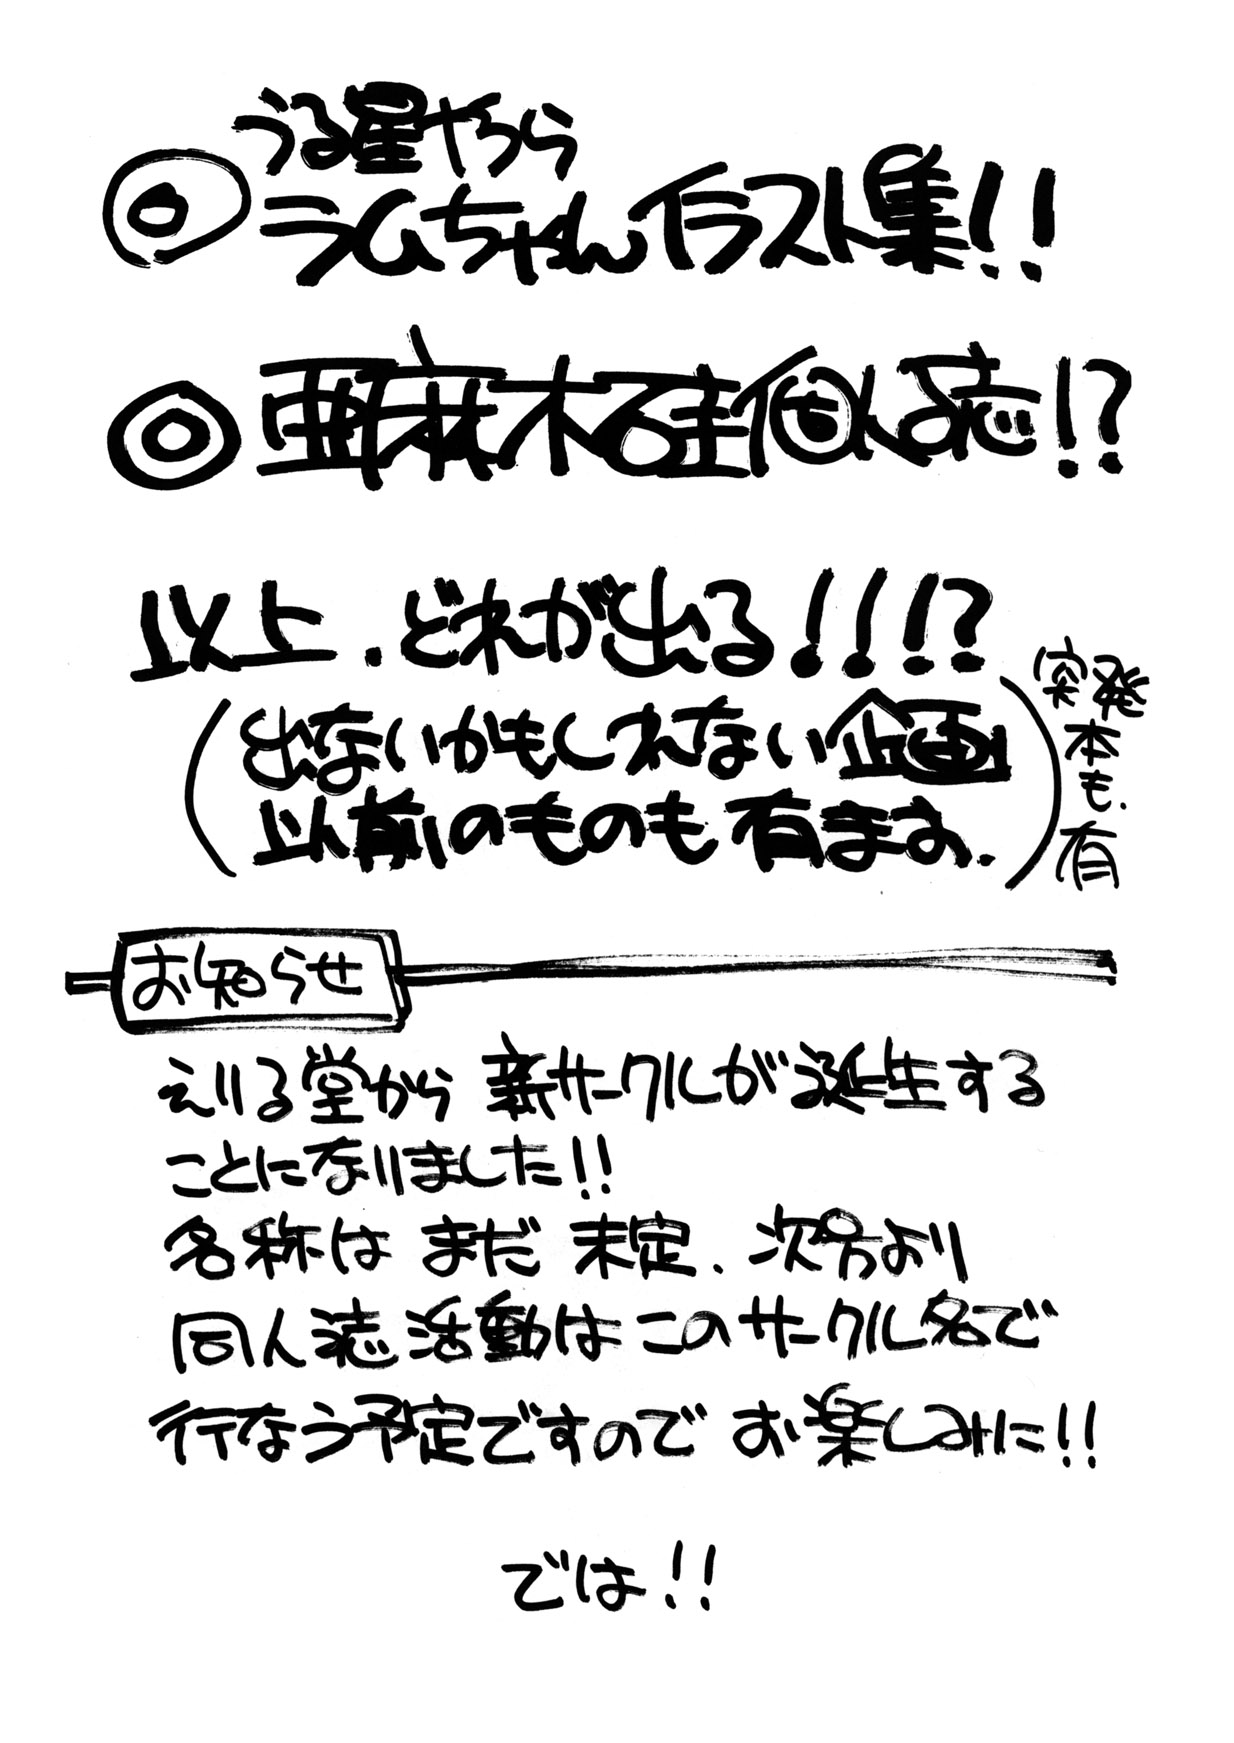 ◎うる星やつら
ラムちゃんイラスト集!!
◎亜麻木硅個人誌!?
以上.どれが出る!!!!?
(出ないかもしれない企画
以前のものも有ます.)
突発本も.有
お知らせ
えりる堂から 新サークルが誕生する
ことになりました!!
名称は まだ 未定. 次号より
同人誌活動は このサークル名で
行なう予定ですので お楽しみに!!
では!!